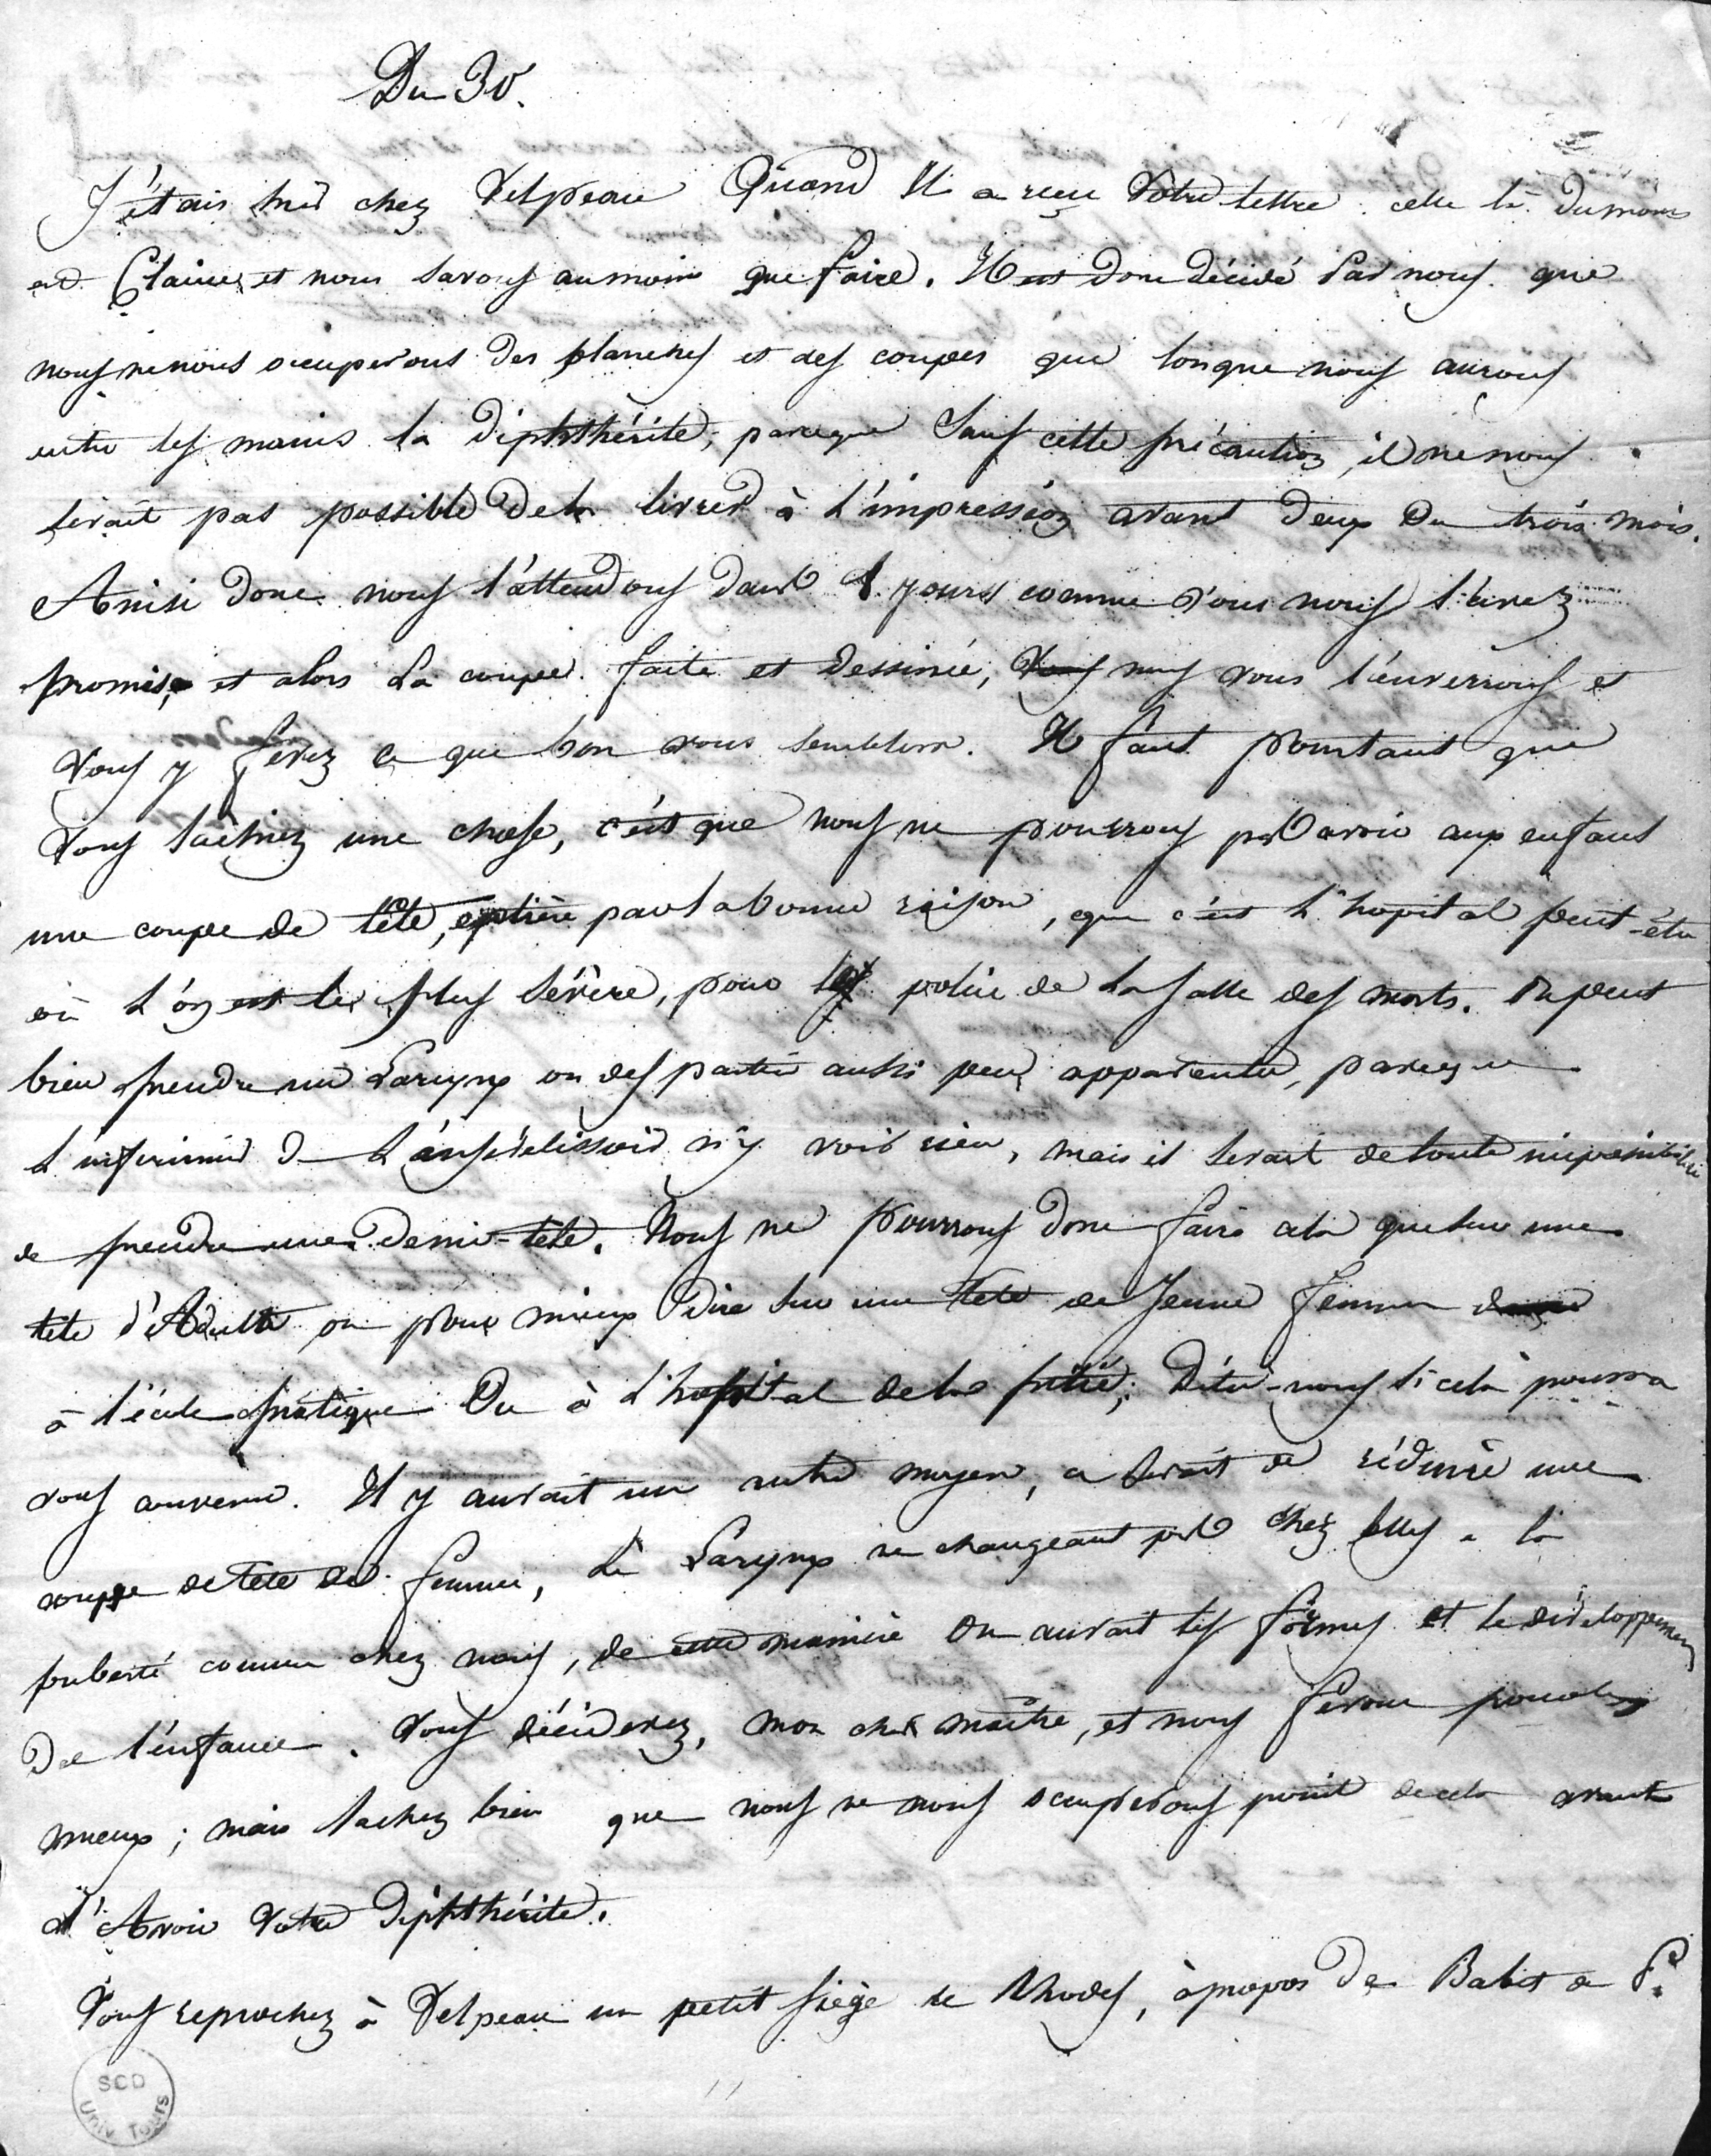 Du 30.
J'étais hier chez Velpeau Quand Il a reçu Votre lettre. celle là du moins
est Claire, et nous savons au moins que faire. Il est donc décidé par nous que
nous ne nous occuperons des planches et des coupes que lorsque nous aurons
entre les mains la Diphthérite, parceque sans cette précaution, il ne nous
serait pas possible de la livrer à L'impression avant deux Ou trois mois.
Ainsi donc nous l'attendons dans 8 jours comme Vous nous l'avez
promis, et alors La coupe faite et dessinée, nous vous l'enverrons et
Vous y ferez ce que bon vous semblera. Il faut pourtant que
Vous sachiez une chose, c'est que nous ne pourrons pas avoir aux enfans
une coupe de tête entière par la bonne raison, que c'est L'hopital peut-être
où L'on est le plus sévère, pour la police de la salle des morts. On peut
bien prendre un Larynx ou des parties aussi peu apparentes, parceque
L'infirmier de L'ensevelissoir n'y voit rien, mais il serait de toute impossibilité
de prendre une Demi-tête. Nous ne pourrons donc faire cela que sur une
tête d'Adulte ou pour mieux Dire sur une tête de Jeune femme
à l'école pratique Ou à L'hopital de la pitié; Dites-nous si cela pourra
vous convenir. Il y aurait un autre moyen, ce serait de réduire une
coupe de tete de femme, Le Larynx ne changeant pas chez elles a la
puberté comme chez nous, de cette manière On aurait les formes et le développement
De l'enfance. Vous déciderez, mon cher maître, et nous ferons pour le
mieux; mais sachez bien que nous ne nous occuperons point de cela avant
d'Avoir Votre Diphthérite.
Vous reprochez à Velpeau un petit siège de Rhodes, à propos de Babet a P.
SCD
Univ Tours